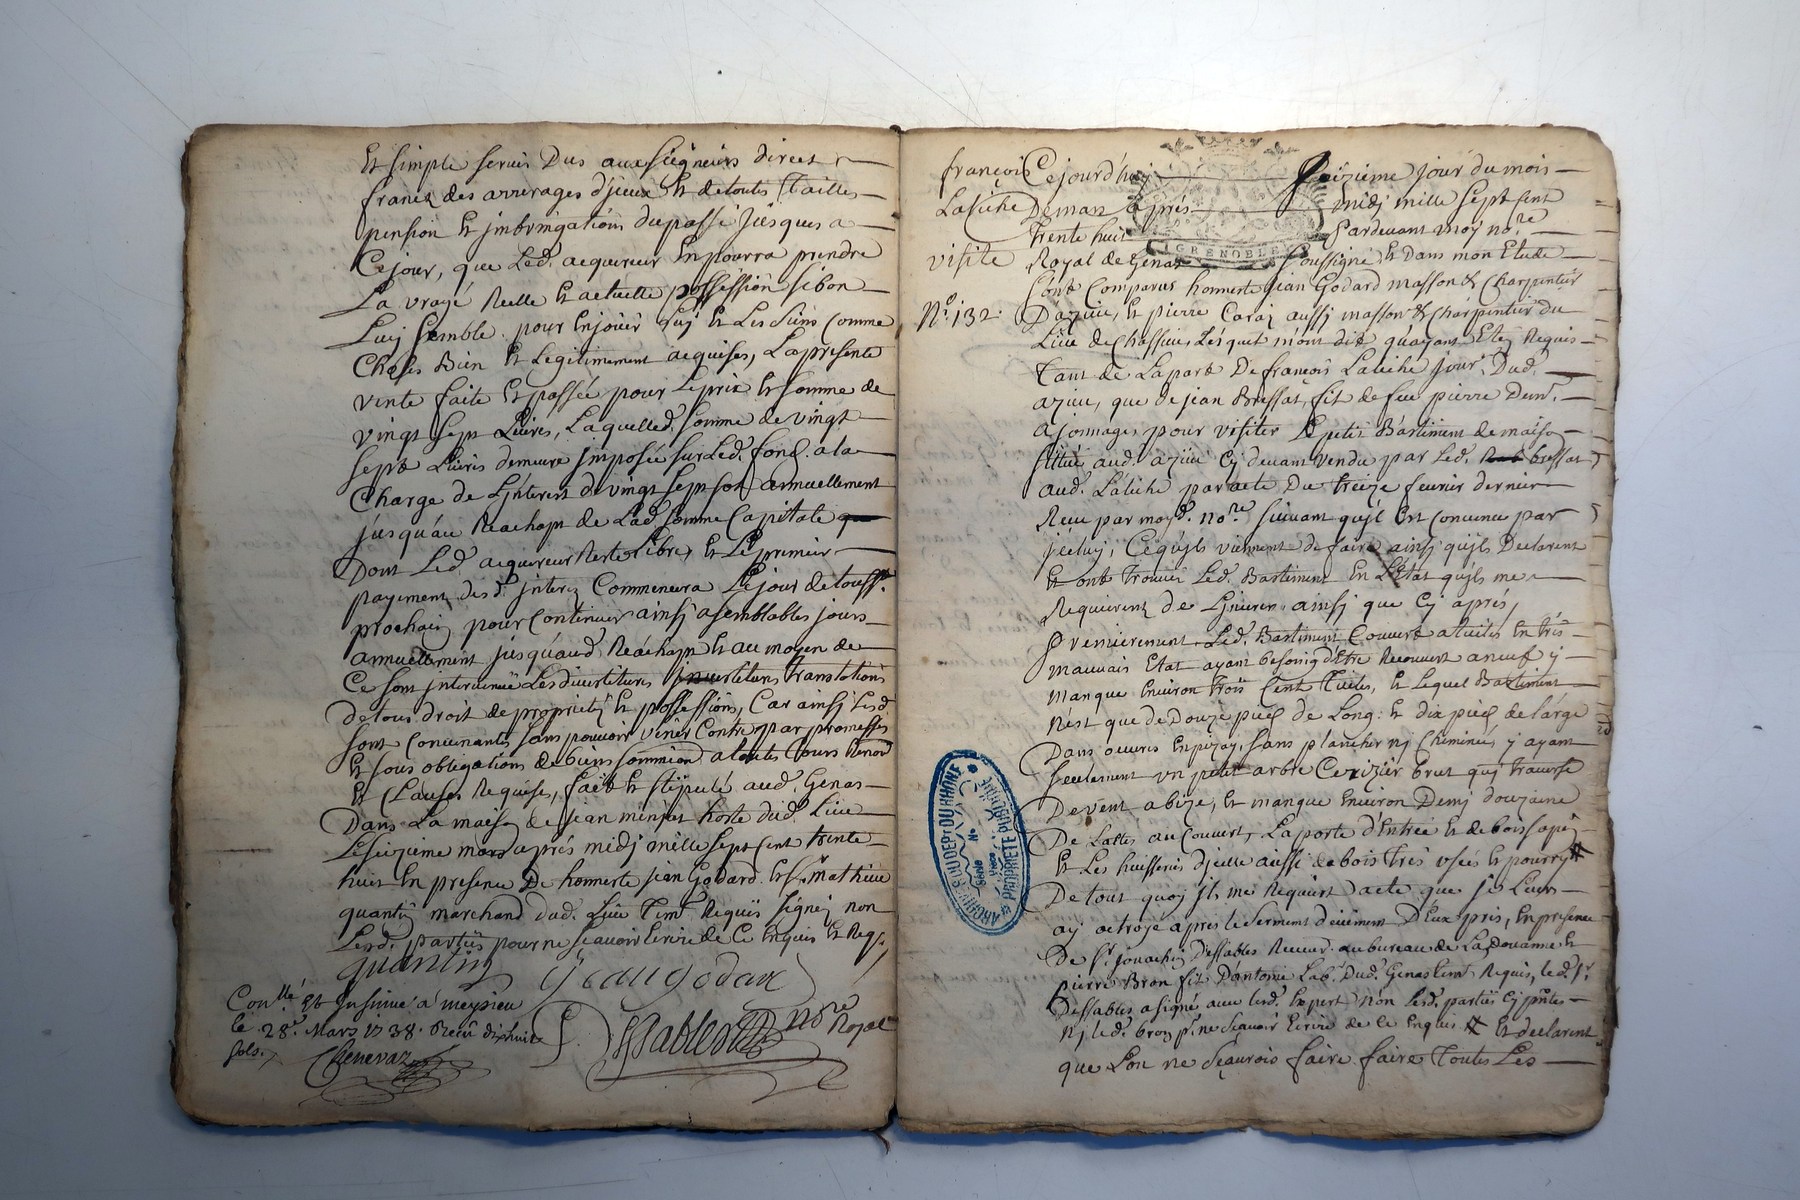 Et simple servis Dus aux seigneurs direct
francq des arrerages d'jceux Et de toutes Tailles
pension Et jmbringations du passé jusques a
Ce jour, que Led. acquereur En pourra prendre
La vraye Reelle Et actuelle possession si bon
Luy semble pour En jouir Luy Et Les siens Comme
Choses Bien Et Legitimement acquises, La presente
vente faite Et passée pour Le prix Et somme de
vingt sept Livres, Laquelled. somme de vingt
sept Livres demeure jmposée sur Led. fond. a la
Charge de L'jnterest de vingt sept sols annuellement
jusqu'au Reachapt de Lad. somme Capitale
Dont Led. acquereur Reste Libre, Et Le premier
payement desd. jnterez Commencera Le jour de touss.
prochain pour Continuer ainsj a semblables jours
annuellement jusqu'aud. Reachapt Et au moyen de
Ce sont jntervenue Les divertitures translations
de tous droit de proprieté Et possessions, Car ainsj Lesd.
sont Convenants sans pouvoir venir Contre par promesses
Et sous obligations de biens soumission a toutes Cours Renon
Et Clauses Requise, fait Et stipulé aud. Genas
Dans La maison de jean minjat hoste dud. Lieu
Le seizieme mars aprés midj mille sept Cent trente
huit En presence De honneste jean Godard Et sr. mathieu
quantin marchand dud. Lieu Tem. Requis signés non
Lesd. parties pour ne scavoir Ecrire de Ce Enquis Et Req.
quantin Jean godar
Conllé. Et Insinué a meysieu
le 28e. Mars 1738. Receu dixhuit
sols.
Chenevaz
nore Royal
françois
Latiche
visite
No. 132.
Ce jourd'huj seizieme jour du mois
De mars aprés midj mille sept cent
trente huit Pardevant moy nore.
Royal de Genas soussigné Et Dans mon Etude
GRENOBLE
sont Comparus honneste jean Godard masson & Charpentier
D'azieu, Et pierre Caraz aussj masson & Charpentier du
Lieu de Chassieu, Lesquels m'ont dit qu'ayant Eté Requis
tant de La part De françois Latiche jour. Dud.
azieu, que de jean Bressat, fit de feu pierre Dem.
a jonnages pour visiter Le petit Bastiment de maison
situé aud. azieu Cy devant vendu par Led. bressat
aud. Latiche par acte Du treize fevrier dernier
Receu par moyd. nore. suivant qu'jl Est Convenu par
jceluy, Ce qu'jls viennent de faire ainsj qu'jls Declarent
Et ont trouvé Led. Bastiment En L'Etat qu'jls me
Requierent de L'jnserer ainsj que Cy aprés,
Premierement Led. Bastiment Couvert a tuiles En trés
mauvais Etat ayant besoing d'Etre Recouvert a neuf. y
manque Environ trois Cent tuiles, Et Lequel Bastiment
n'est que de Douze pied de Long: Et dix pied de large
Dans oeuvres En pizay, sans plancher nj Cheminée, y ayant
seulement un petit arbre Cerizier brut quj traverse
De vent a bize, Et manque Environ Demj douzaine
De Lattes au Couvert, La porte d'Entrée Et de bois sapin
Et Les huisseries d'jcelle aussi de bois trés usées Et pourry
De tout quoy jls me Requiert acte que je Leurs
ay octroyé aprés le serment d'Eux pris, En presence
De sr. jouachin Dessables Receud. au bureau de La douanne Et
pierre Bron fit D'antoine Lab. Dud. Genas tem. Requis, led. sr.
Dessables a signé avec lesd. Expert non lesd. parties Cy pntes
Nj led. bron pr. ne scavoir Ecrire de ce Enquis Et declarent
que L'on ne sçaurois faire faire toutes Les
ARCHIVES DU DEPT DU RHONE
Série
No
PROPRIETE PUBLIQUE